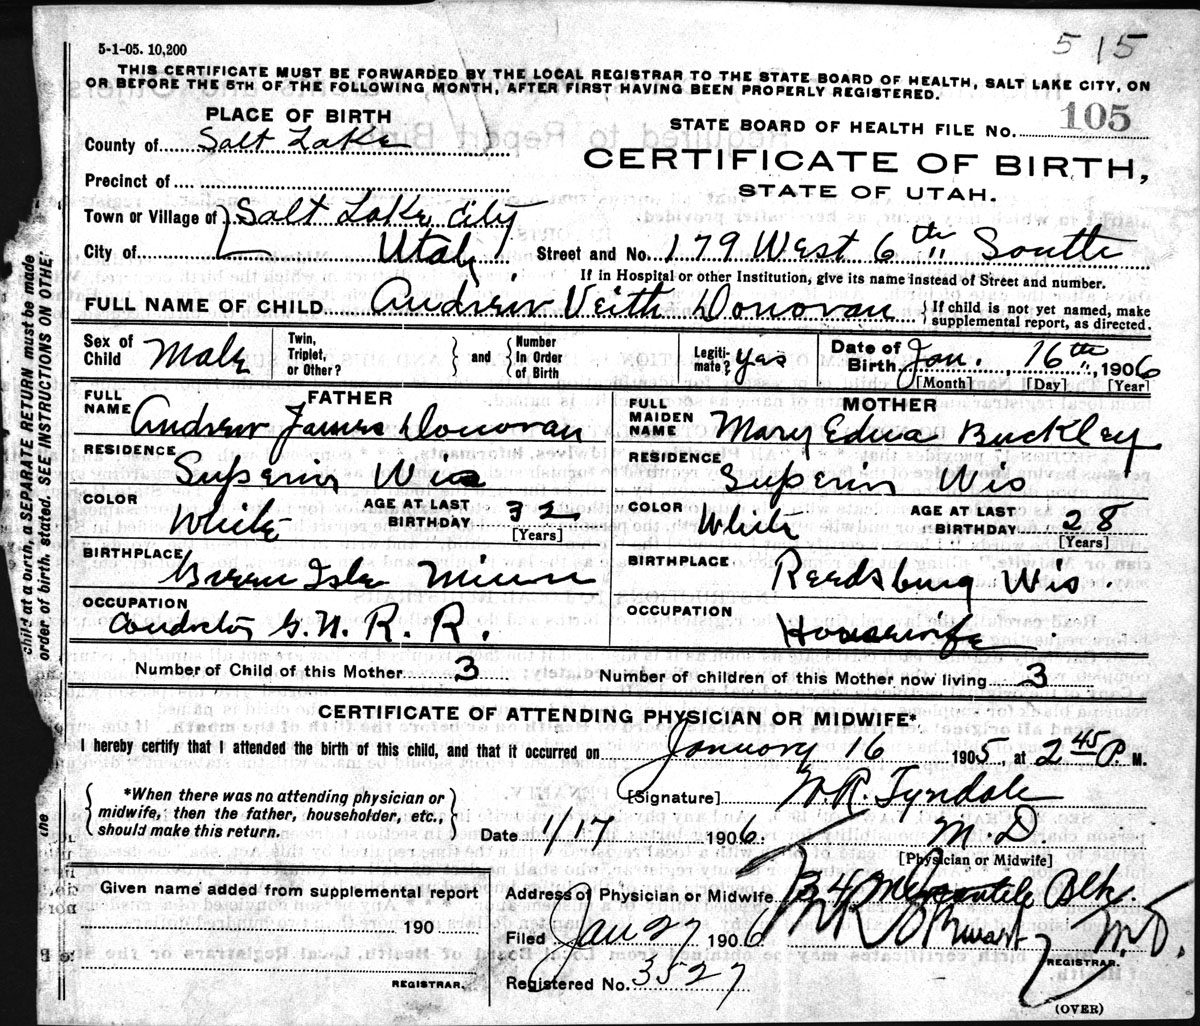 5-1-05. 10,200
515
THIS CERTIFICATE MUST BE FORWARDED BY THE LOCAL REGISTRAR TO THE STATE BOARD OF HEALTH, SALT LAKE CITY, ON
OR BEFORE THE 5TH OF THE FOLLOWING MONTH, AFTER FIRST HAVING BEEN PROPERLY REGISTERED.
PLACE OF BIRTH
County of Salt Lake
Precinct of
Town or Village of Salt Lake City
City of Utah.
STATE BOARD OF HEALTH FILE No. 105
CERTIFICATE OF BIRTH,
STATE OF UTAH.
Street and No. 179 West 6th South
If in Hospital or other Institution, give its name instead of Street and number.
FULL NAME OF CHILD Andrew Veith Donovan { If child is not yet named, make
supplemental report, as directed.
Sex of Child Male
Twin, Triplet, or Other? } and { Number In Order of Birth
Legiti-mate? Yes
Date of Birth Jan. 16th, 1906
[Month] [Day] [Year]
FATHER
FULL NAME Andrew James Donovan
RESIDENCE Superior Wis
COLOR White
AGE AT LAST BIRTHDAY 32
[Years]
BIRTHPLACE Isle Minn
OCCUPATION Conductor G.N. R. R.
MOTHER
FULL MAIDEN NAME Mary Edna Buckley
RESIDENCE Superior Wis
COLOR White
AGE AT LAST BIRTHDAY 28
[Years]
BIRTHPLACE Reedsburg Wis
OCCUPATION Housewife
Number of Child of this Mother 3
Number of children of this Mother now living 3
CERTIFICATE OF ATTENDING PHYSICIAN OR MIDWIFE*.
I hereby certify that I attended the birth of this child, and that it occurred on January 16 1905, at 2 45 P. M.
{ *When there was no attending physician or
midwife, then the father, householder, etc.,
should make this return. }
[Signature] W.R. Tyndale
M. D.
[Physician or Midwife]
Date 1/17 1906
Address of Physician or Midwife Mercantile Blk.
Filed Jan 27 1906 M.D.
REGISTRAR.
Registered No. 3527
Given name added from supplemental report
190
REGISTRAR.
(OVER)
child at a birth, a SEPARATE RETURN must be made
order of birth, stated. SEE INSTRUCTIONS ON OTHE
the